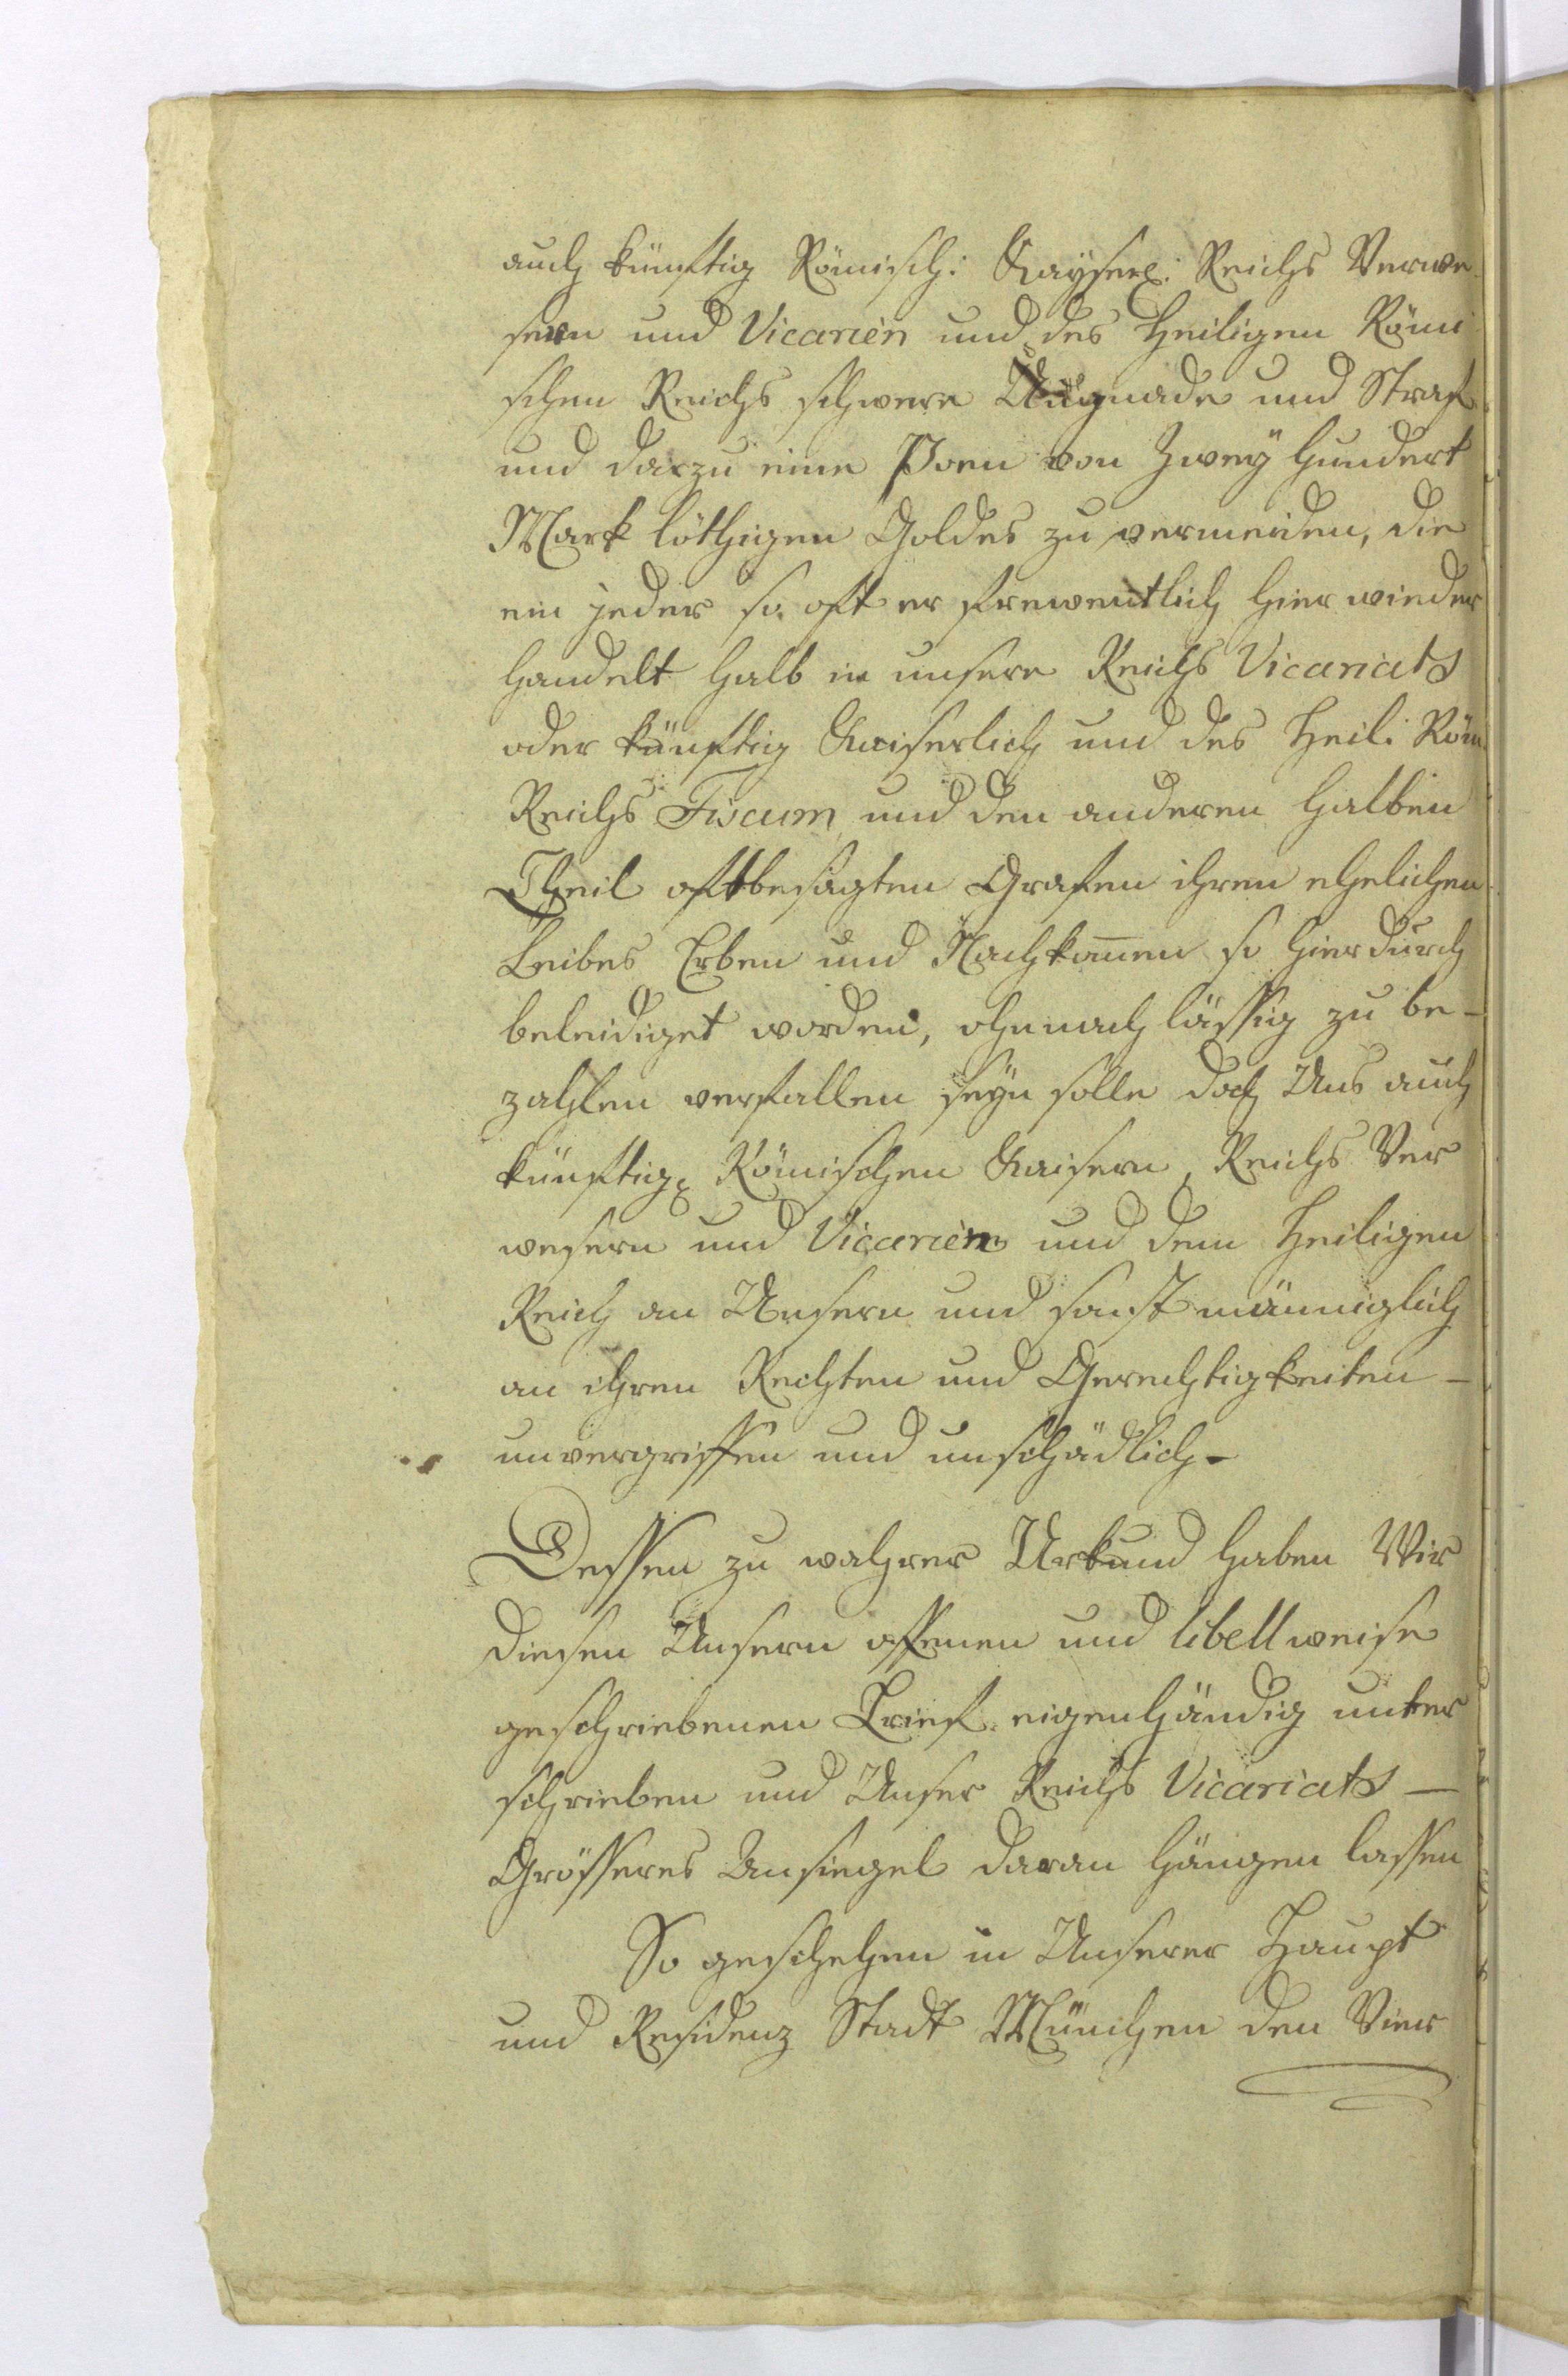 auch künftig Römisch: Kayserl: Reichs Verwe-
sern und Vicarien und des Heiligen Römi
schen Reichs schwere Ungnade und Straf
und darzu eine Poen von Zwey hundert
Mark löthigen Goldes zu vermeiden, die
ein jeder so oft er frewentlich hier wieder
handelt halb in unsere Reichs Vicariats
oder künftig Kaiserlich und des Heil: Röm.
Reichs Fiscum und den anderen halben
Theil oftbesagten Grafen ihren ehelichen
Leibes Erben und Nachkom̄en so hierdurch
beleidiget worden, ohnnachlässig zu be-
zahlen verfallen seyn solle doch Uns auch
künftig Römischen Kaisern, Reichs Ver
wesern und Vicarien und dem Heiligen
Reich an Unsern und sonst männiglich
an ihren Rechten und Gerechtigkeiten -
unvergriffen und unschädlich -
Dessen zu wahrer Urkund haben Wir
diesen Unsern offenen und libell weise
geschriebenen Brief eigenhändig unter
schrieben und Unser Reichs Vicariats -
Grösseres Insiegel daran hängen lassen
So geschehen in Unserer Haupt
und Residenz Stadt München den Vier